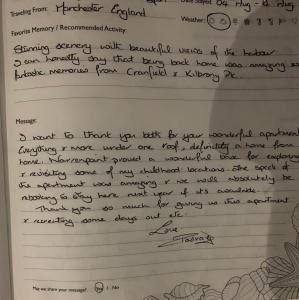 Traveling From: Manchester England
Weather:
Favorite Memory / Recommended Activity:
Stunning scenery with beautiful views of the harbour
I can honestly say that being back home was amazing
fantastic memories from Cranfield & Kilbroney Pk.
Message:
I want to thank you both for your wonderful apartment
Everything & more under one roof, definitely a home from
home. Warrenpoint proved a wonderful base for exploring
& revisiting some of my childhood locations. The spec of
the apartment was amazing & we will absolutely be
rebooking to stay here next year if it's available.
Thank you so much for giving us this apartment
& recreating some days out etc.
Love
May we share your message? Yes No